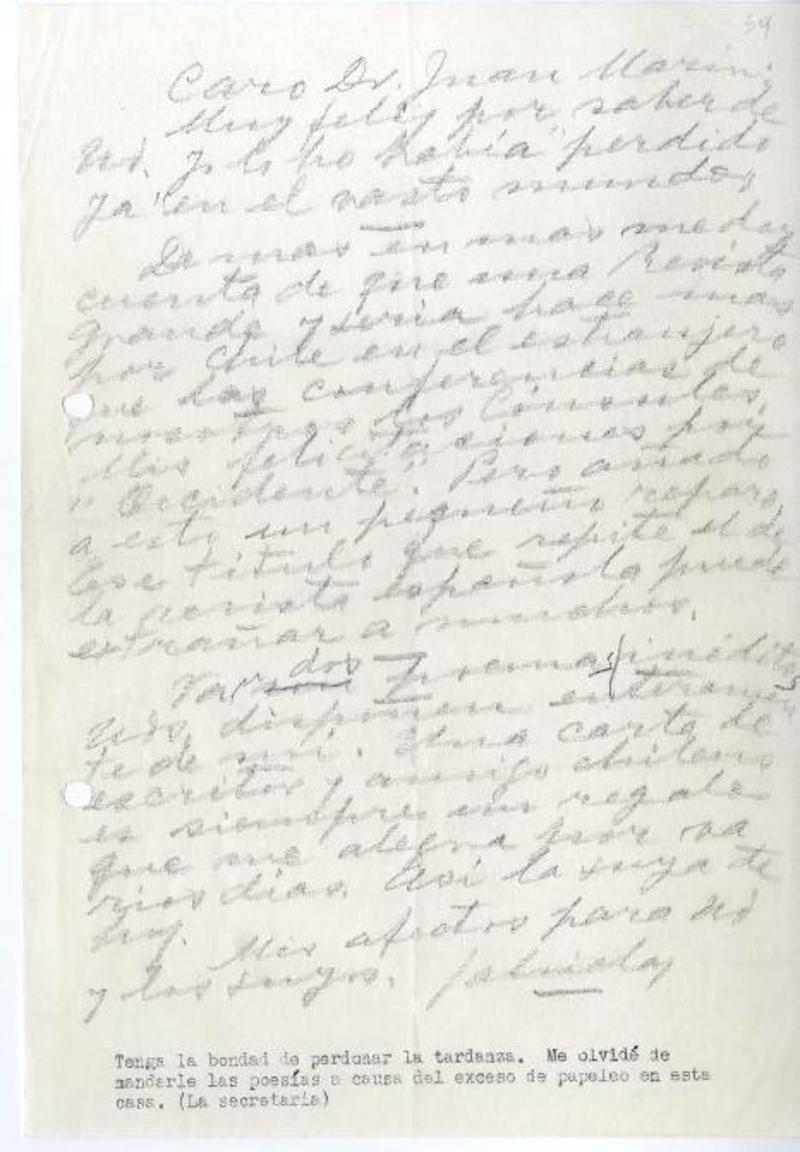 59
Caro Dr. Juan Marín:
Muy feliz por saber de
Ud. Yo lo había "perdido
ya" en el vasto mundo.
De mas en mas me doy
cuenta de que una Revista
grande y seria hace mas
por Chile en el estranjero
que las conferencias de
nosotros los Cónsules.
Mis felicitaciones por
"Occidente". Pero añado
a esto un pequeño reparo.
Ese título que repite el de
la revista española puede
extrañar a muchos.
Van dos poemas inéditos
Uds. disponen enteramen-
te de mí. Una carta de
escritor y amigo chileno
es siempre un regalo
que me alegra por va
rios días. Así la suya de
hoy.
Mis afectos para Ud
y los suyos. Gabriela
Tenga la bondad de perdonar la tardanza. Me olvidé de
mandarle las poesías a causa del exceso de papeleo en esta
casa. (La secretaria)